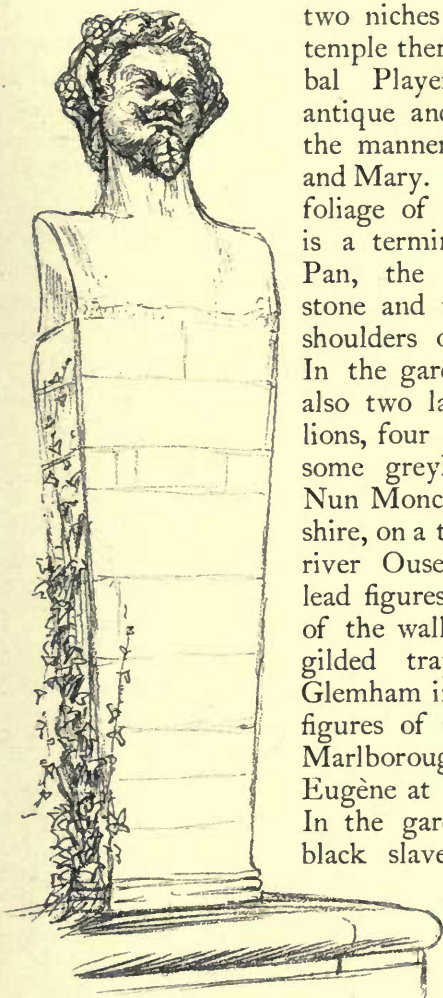 two niches
temple ther
bal Player
antique and
the manner
and Mary.
foliage of
is a termin
Pan, the
stone and
shoulders o
In the gard
also two la
lions, four
some greyh
Nun Monc
shire, on a t
river Ouse
lead figures
of the wall
gilded tra
Glemham i
figures of
Marlboroug
Eugène at
In the gard
black slave